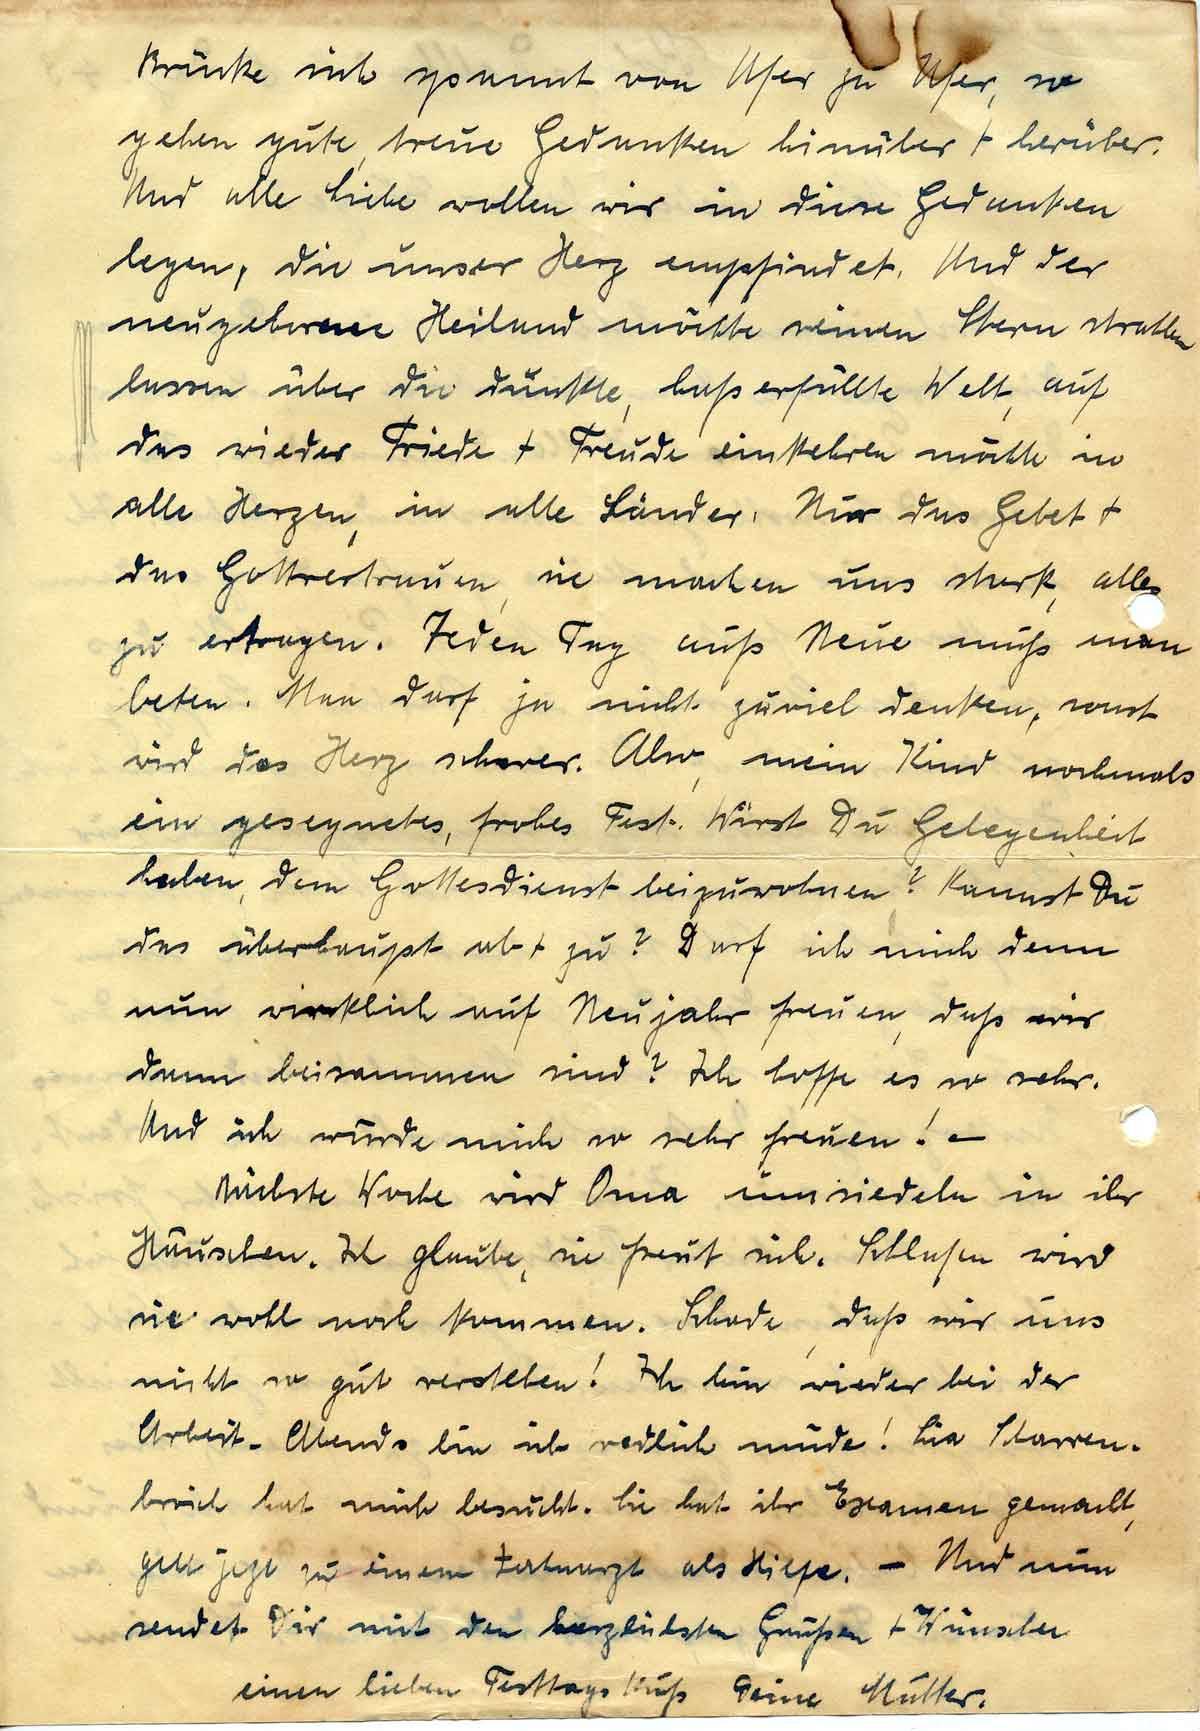 Brücke sich spannt von Ufer zu Ufer, so
gehen gute, treue Gedanken hinüber + herüber.
Und alle Liebe wollen wir in diese Gedanken
legen, die unser Herz empfindet. Und der
neugeborene Heiland möchte seinen Stern strahlen
lassen über die dunkle, haßerfüllte Welt, auf
das wieder Friede + Freude einkehren möchte in
alle Herzen, in alle Länder. Nur das Gebet +
das Gottvertrauen, sie machen uns stark, alles
zu ertragen. Jeden Tag aufs Neue muß man
beten. Man darf ja nicht zuviel denken, sonst
wird das Herz schwer. Also, mein Kind nochmals
ein gesegnetes, frohes Fest. Wirst Du Gelegenheit
haben, dem Gottesdienst beizuwohnen? Kannst Du
das überhaupt ab + zu? Darf ich mich denn
nun wirklich auf Neujahr freuen, daß wir
dann beisammen sind? Ich hoffe es so sehr.
Und ich würde mich so sehr freuen! –
Nächste Woche wird Oma umsiedeln in ihr
Häuschen. Ich glaube, sie freut sich. Schlafen wird
sie wohl noch kommen. Schade, daß wir uns
nicht so gut verstehen! Ich bin wieder bei der
Arbeit. Abends bin ich redlich müde! Lia Scharren-
broich hat mich besucht. Sie hat ihr Examen gemacht,
geht jetzt zu einem Zahnarzt als Hilfe. – Und nun
sendet Dir mit den herzlichsten Grüßen + Wünschen
einen lieben Festtagskuß Deine Mutter.